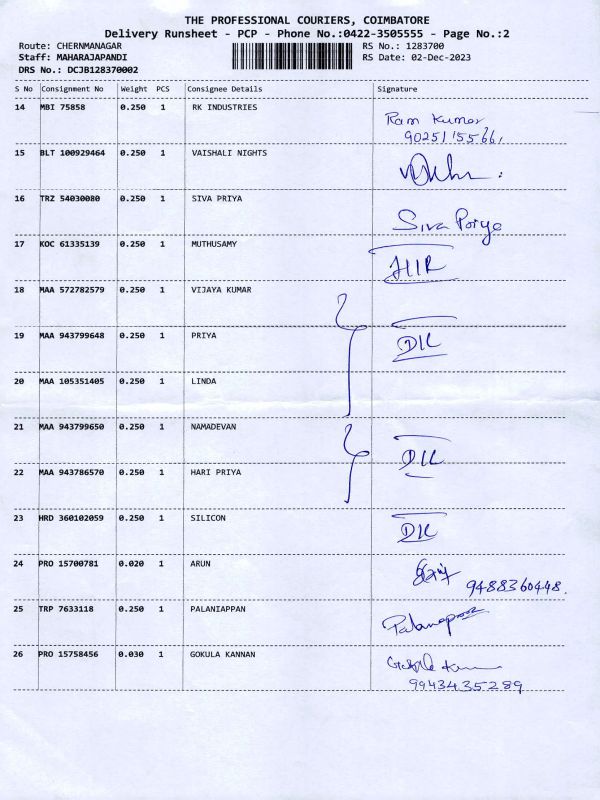 THE PROFESSIONAL COURIERS, COIMBATORE
Delivery Runsheet - PCP - Phone No.:0422-3505555 - Page No.:2
Route: CHERNMANAGAR
RS No.: 1283700
Staff: MAHARAJAPANDI
RS Date: 02-Dec-2023
DRS No.: DCJB128370002
S No Consignment No Weight PCS Consignee Details Signature
14 MBI 75858 0.250 1 RK INDUSTRIES
Ram Kumar
15 BLT 100929464 0.250 1 VAISHALI NIGHTS
16 TRZ 54030080 0.250 1 SIVA PRIYA
Siva Poriya
17 KOC 61335139 0.250 1 MUTHUSAMY
18 MAA 572782579 0.250 1 VIJAYA KUMAR
19 MAA 943799648 0.250 1 PRIYA
20 MAA 105351405 0.250 1 LINDA
21 MAA 943799650 0.250 1 NAMADEVAN
22 MAA 943786570 0.250 1 HARI PRIYA
23 HRD 360102059 0.250 1 SILICON
24 PRO 15700781 0.020 1 ARUN
9488360448.
25 TRP 7633118 0.250 1 PALANIAPPAN
26 PRO 15758456 0.030 1 GOKULA KANNAN
9943435289